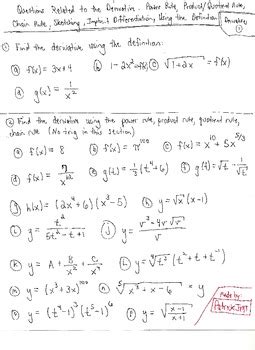 Questions Related to the Derivative. Power Rule, Product/Quotient Rule,
Chain Rule, Sketching, Implicit Differentiation, Using the Definition
Derivatives
① Find the derivative using the definition:
ⓐ f(x) = 3x+4 ⓑ 1-2x²=f(x) ⓒ √(1+2x) = f(x)
ⓓ g(x) = 1/x²
② Find the derivative using the power rule, product rule, quotient rule,
chain rule (No trig in this section)
ⓐ f(x) = 8 ⓑ f(x) = π¹⁰⁰ ⓒ f(x) = x¹⁰ + 5x^(5/3)
ⓓ ⓔ g(t) = 1/3 (t⁴+6) ⓕ
ⓖ h(x) = (2x⁴+6)(x³-5) ⓗ y = √x (x-1)
ⓘ y = t²/(5t²-t+1) ⓙ y = (v³-4v√v)/v
ⓚ y = A + B/x² + C/x⁴ ⓛ
ⓜ y = (x³+3x)¹⁰⁰ ⓝ ⁵√(x³+x-6) = y
ⓞ y = (t⁴-1)³(t⁵-1)⁶ ⓟ y = √((x-1)/(x+1))
made by
PatrickJMT